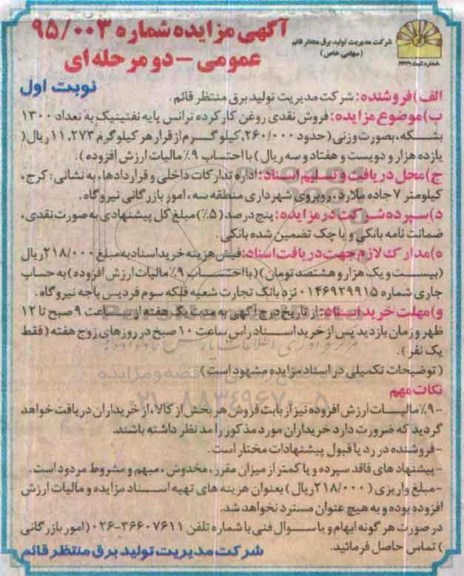 آگهی مزایده شماره ۹۵/۰۰۳
عمومی – دو مرحله ای
نوبت اول
شرکت مدیریت تولید برق منتظر قائم
(سهامی خاص)
الف) فروشنده: شرکت مدیریت تولید برق منتظر قائم.
ب) موضوع مزایده: فروش نقدی روغن کارکرده ترانس پایه نفتینیک به تعداد ۱۳۰۰
بشکه، بصورت وزنی (حدود ۲۶۰/۰۰۰ کیلوگرم از قرار هر کیلوگرم ۱۱,۲۷۳ ریال (
یازده هزار و دویست و هفتاد و سه ریال) با احتساب ۹٪ مالیات ارزش افزوده).
ج) محل دریافت و تسلیم اسناد: اداره تدارکات داخلی و قراردادها، به نشانی: کرج،
کیلومتر ۷ جاده ملارد، روبروی شهرداری منطقه سه، امور بازرگانی نیروگاه.
د) سپرده شرکت در مزایده: پنج درصد (۵٪) مبلغ کل پیشنهادی به صورت نقدی،
ضمانت نامه بانکی و یا چک تضمین شده بانکی.
ه) مدارک لازم جهت دریافت اسناد: فیش هزینه خرید اسناد به مبلغ ۲۱۸/۰۰۰ ریال
(بیست و یک هزار و هشتصد تومان) (با احتساب ۹٪ مالیات ارزش افزوده) به حساب
جاری شماره ۰۱۴۶۹۲۹۹۱۵ نزد بانک تجارت شعبه فلکه سوم فردیس باجه نیروگاه.
و) مهلت خرید اسناد: از تاریخ درج آگهی به مدت یک هفته از ساعت ۹ صبح تا ۱۲
ظهر و زمان بازدید پس از خرید اسناد راس ساعت ۱۰ صبح در روزهای زوج هفته (فقط
یک نفر).
(توضیحات تکمیلی در اسناد مزایده مشهود است)
نکات مهم
-۹٪ مالیات ارزش افزوده نیز از بابت فروش هر بخش از کالا، از خریداران دریافت خواهد
گردید که ضرورت دارد خریداران مورد مذکور را مد نظر داشته باشند.
-فروشنده در رد یا قبول پیشنهادات مختار است.
-پیشنهادهای فاقد سپرده و یا کمتر از میزان مقرر، مخدوش، مبهم و مشروط مردود است.
-مبلغ واریزی (۲۱۸/۰۰۰ ریال) بعنوان هزینه های تهیه اسناد مزایده و مالیات ارزش
افزوده بوده و به هیچ عنوان مسترد نخواهد شد.
در صورت هر گونه ابهام و یا سوال فنی با شماره تلفن ۳۶۶۰۷۶۱۱-۰۲۶ (امور بازرگانی
) تماس حاصل فرمائید.
شرکت مدیریت تولید برق منتظر قائم